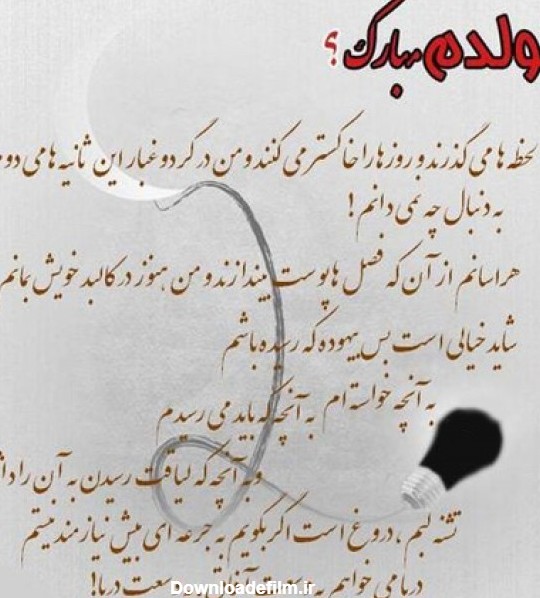 ولدم مبارک ؟
لحظه ها می گذرند و روزها را خاکستر می کنند و من در گرد و غبار این ثانیه ها می دو
به دنبال چه نمی دانم !
هراسانم از آن که فصل ها پوست بیندازند و من هنوز در کالبد خویش بمانم
شاید خیالی است بس بیهوده که رسیده باشم
به آنچه خواسته ام به آنچه که باید می رسیدم
و به آنچه که لیاقت رسیدن به آن را دا
تشنه لبم ، دروغ است اگر بگویم به جرعه ای بیش نیازمند نیستم
دریا می خواهم به وسعت دریا!
Downloadefilm.ir